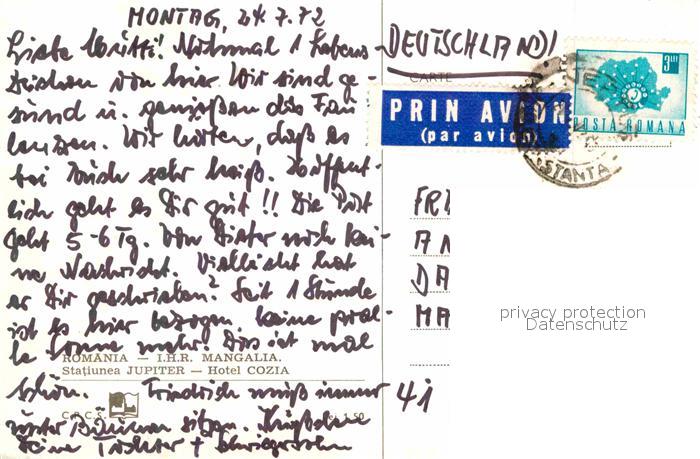 MONTAG, 24.7.72
Liebe Mutti! Nochmal 1 Lebens-
zeichen von hier. Wir sind ge-
sund u. genießen das Fau
lenzen. Wir hörten, daß es
bei Euch sehr heiß. Hoffent-
lich geht es Dir gut!! Die Post
geht 5-6 Tg. Von Dieter noch kei-
ne Nachricht. Vielleicht hat
er Dir geschrieben? Seit 1 Stunde
ist es hier bezogen, keine pral-
le Sonne mehr. Das ist mal
schön. Friedrich muß immer
unter Bäumen sitzen. Küßchen
Deine Tochter + Schwiegersohn
ROMÂNIA — I.H.R. MANGALIA.
Stațiunea JUPITER — Hotel COZIA
C.P.C.S.
Lei 1,50
DEUTSCHLAND!
CARTE
PRIN AVION
(par avion)
3 LEI
POSTA ROMANA
STANTA
FRI
AN
DA
MA
41
privacy protection
Datenschutz